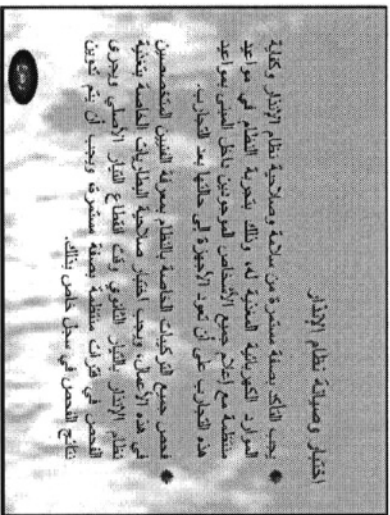 اختبار وصيانة نظام الإنذار
يجب التأكد بصفة مستمرة من سلامة وصلاحية نظام الإنذار وكفاية
الموارد الكهربائية المغذية له، وذلك بتجربة النظام في مواعيد
منتظمة مع إعلام جميع الأشخاص الموجودين داخل المبنى بمواعيد
هذه التجارب على أن تعود الأجهزة إلى حالتها بعد التجارب.
فحص جميع التركيبات الخاصة بالنظام بمعرفة الفنيين المتخصصين
في هذه الأعمال، ويجب اختبار صلاحية البطاريات الخاصة بتغذية
نظام الإنذار بالتيار الثانوي وقت انقطاع التيار الأصلي ويجرى
الفحص في فترات منتظمة بصفة مستمرة، ويجب أن يتم تدوين
نتائج الفحص في سجل خاص بذلك.